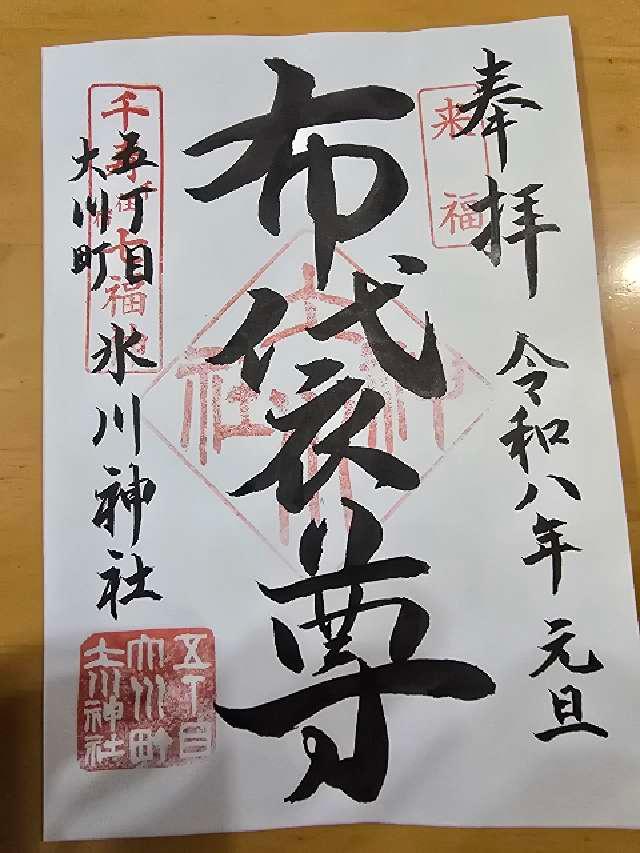 奉拝
来福
令和八年 元旦
布袋尊
氷川神社
千寿七福
五丁目
大川町
氷川神社
五丁目
大川町
氷川神社